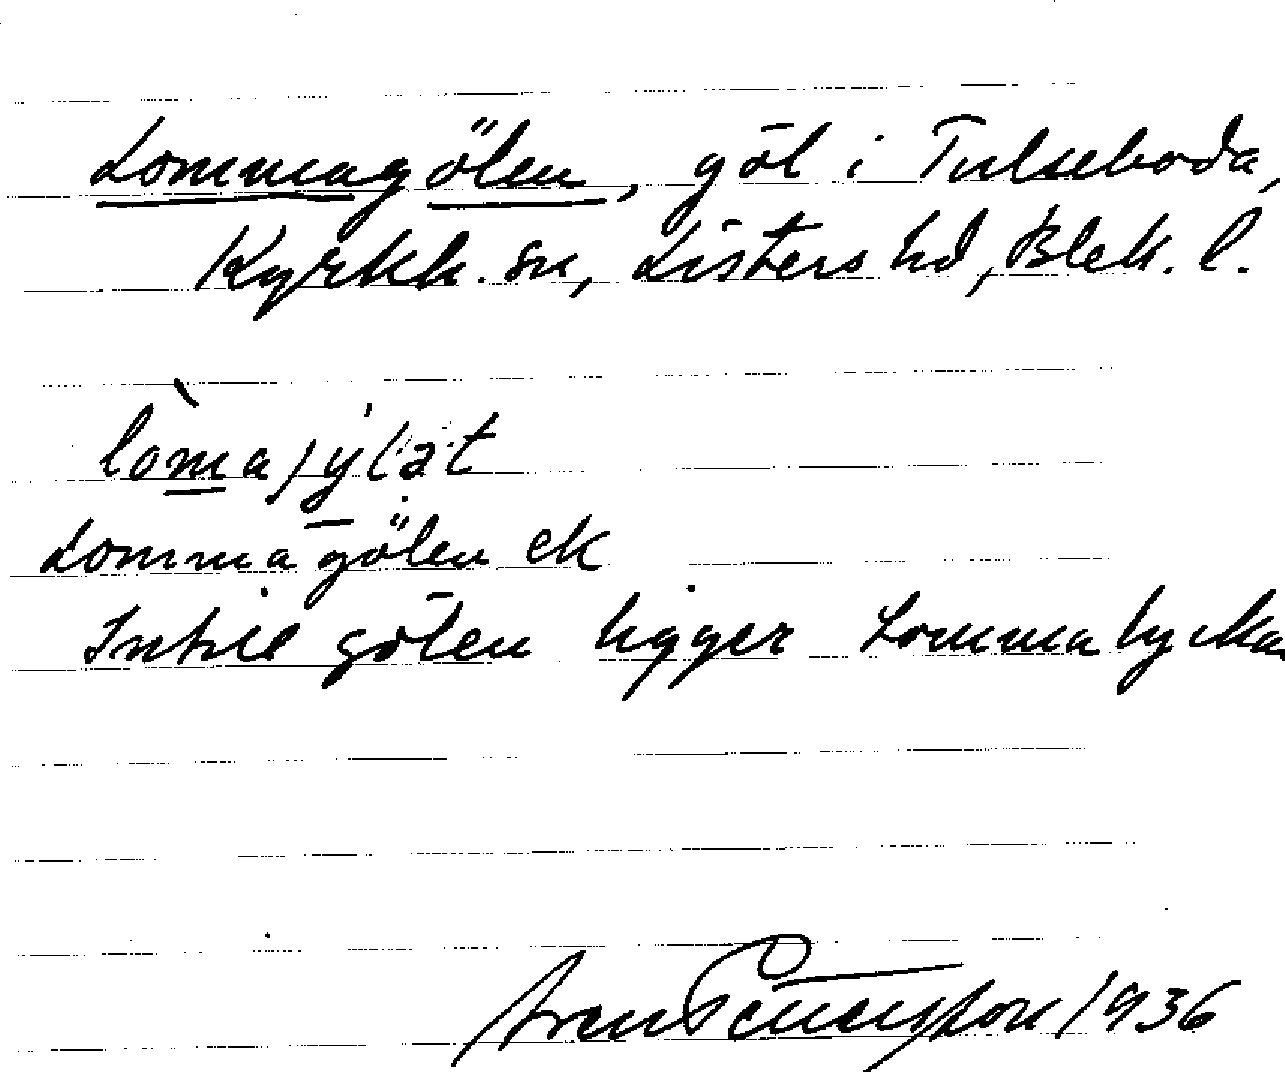 Lommagölen, göl i Tulseboda,
Kyrkh. sn, Listers hd, Blek. l.
Lommagölen ek
Intill gölen ligger Lommalycka
1936